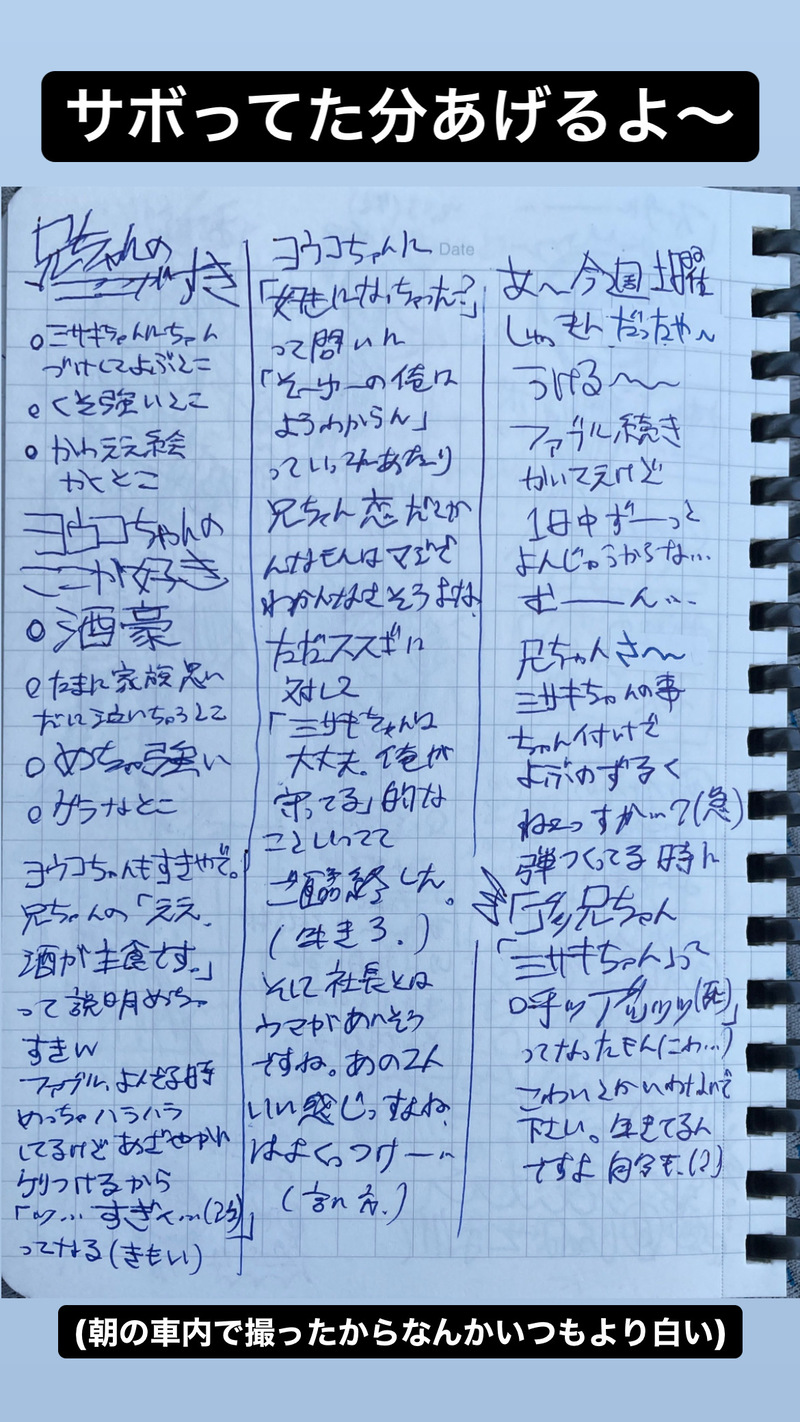 サボってた分あげるよ〜
兄ちゃんの
ここがすき
ミサキちゃんにちゃん
づけしてよぶとこ
くそ強いとこ
かわええ絵
かくとこ
ヨウコちゃんの
ここが好き
酒豪
たまに家族思い
だして泣いちゃうとこ
めちゃ強い
ゲラなとこ
ヨウコちゃんもすきやで。
兄ちゃんの「ええ、
酒が主食です。」
って説明めちゃ
すきw
ファブル、よんでる時
めっちゃハラハラ
してるけどあざやかに
ケリつけるから
「ッ…すぎ
ってなる(きもい)
ヨウコちゃんに
Date
「好きになっちゃった?」
って問いに
「そーゆーの俺は
ようわからん」
っていってたあたり
兄ちゃん恋だとか
んなもんはマジで
わかんなさそうよな
ただスズキに
対して
「ミサキちゃんは
大丈夫。俺が
守ってる」的な
こといってて
ご臨終した。
(生きろ.)
そして社長とは
ウマがあいそう
ですね。あの2人
いい感じっすよね
はよくっつけー
(言い方.)
あ〜今週土曜
しゅっきんだったや〜
うける〜〜
ファブル続き
かいてえけど
1日中ずーっと
よんじゅうからな…
むーーん…
兄ちゃんさ〜
ミサキちゃんの事
ちゃん付けで
よぶのずるく
ねぇっすか…?(急)
弾つくってる時に
「アッ兄ちゃん
「ミサキちゃん」って
呼ッアッッッ(死)」
ってなったもん(こわ…)
こわいとかいわないで
下さい。生きてるん
ですよ自分も.(?)
(朝の車内で撮ったからなんかいつもより白い)